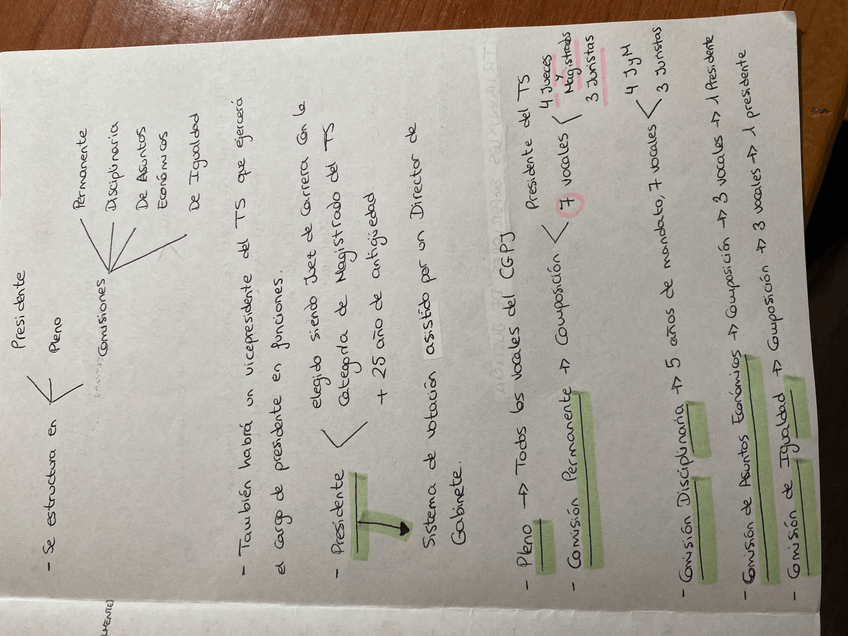 Presidente
- Se estructura en
Pleno
Comisiones
Permanente
Disciplinaria
De Asuntos
Económicos
De Igualdad
- También habrá un vicepresidente del TS que ejercerá
el cargo de presidente en funciones.
- Presidente
elegido siendo Juez de Carrera con la
Categoría de Magistrado del TS
+ 25 año de antigüedad
Sistema de votación asistido por un Director de
Gabinete.
- Pleno → Todos los vocales del CGPJ
- Comisión Permanente → Composición
Presidente del TS
7 vocales
4 Jueces
y
Magistrados
3 Juristas
- Comisión Disciplinaria → 5 años de mandato, 7 vocales
4 JyM
3 Juristas
- Comisión de Asuntos Económicos → Composición → 3 vocales → 1 Presidente
- Comisión de Igualdad → Composición → 3 vocales → 1 presidente